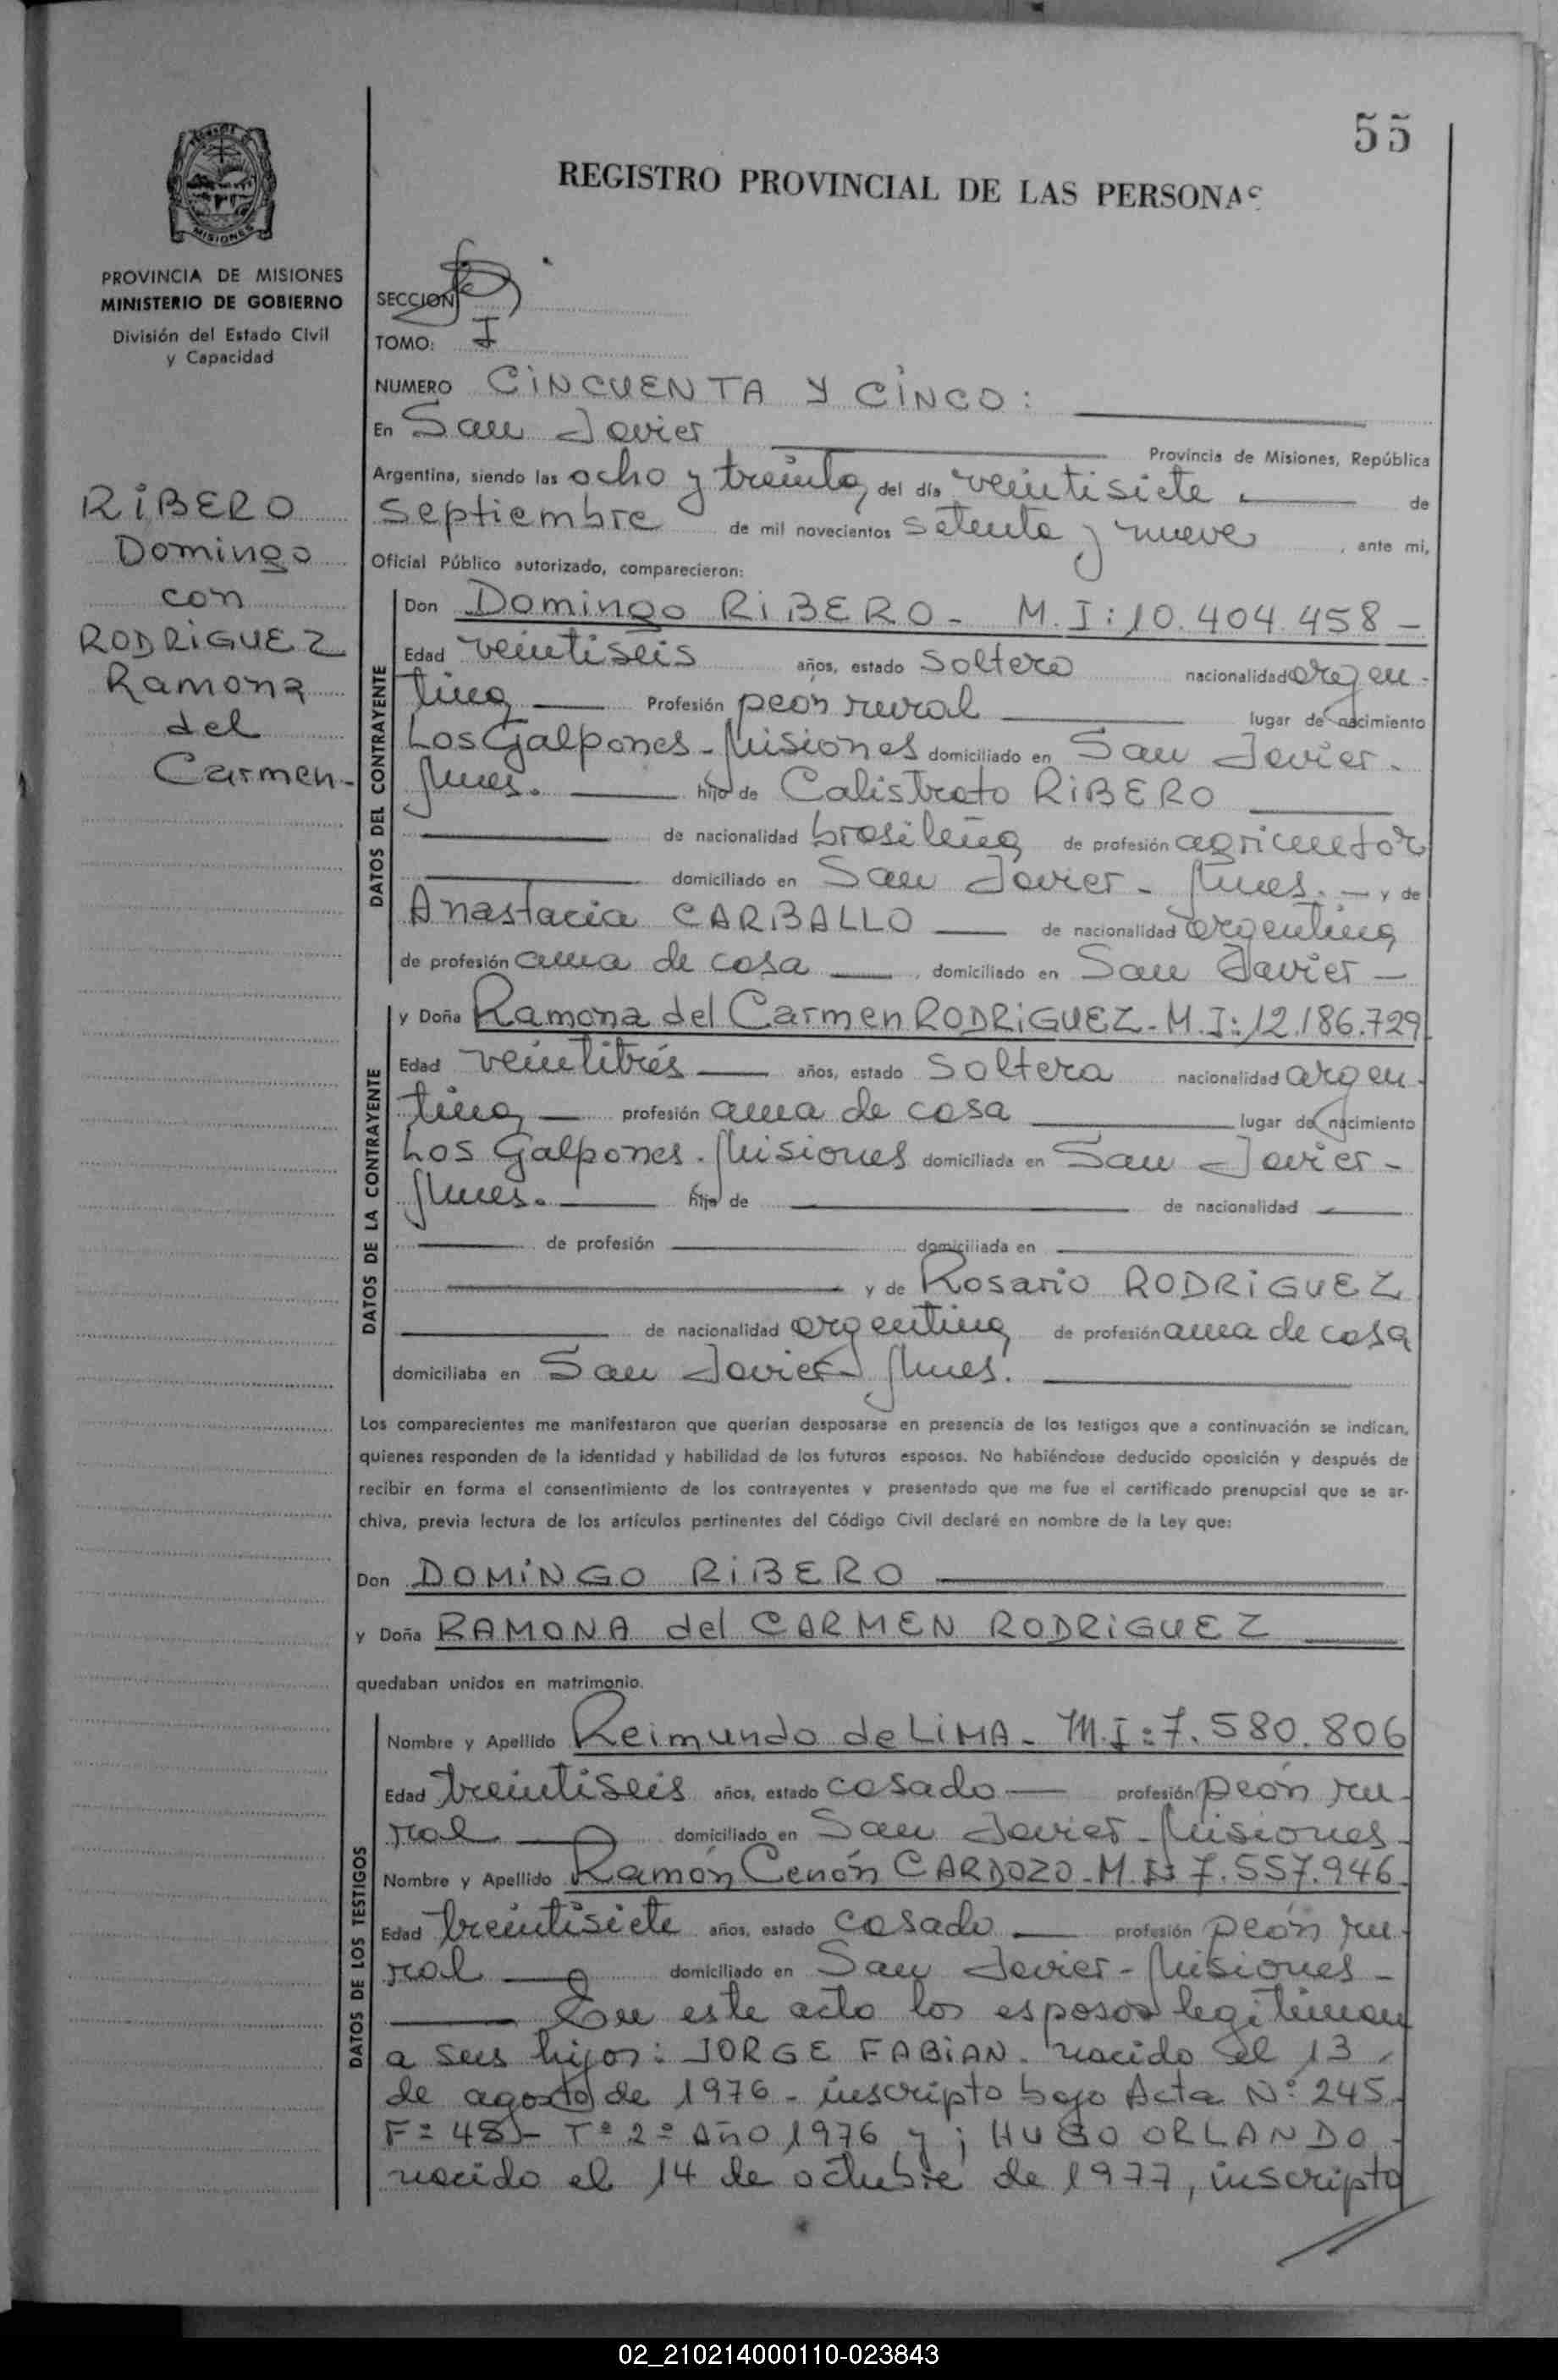 55
REGISTRO PROVINCIAL DE LAS PERSONAS
MISIONES
PROVINCIA DE MISIONES
MINISTERIO DE GOBIERNO
División del Estado Civil
y Capacidad
RIBERO
Domingo
con
RODRIGUEZ
Ramona
del
Carmen-
SECCION
TOMO: I
NUMERO CINCUENTA Y CINCO:
En San Javier Provincia de Misiones, República
Argentina, siendo las ocho y treinta, del día veintisiete de
septiembre de mil novecientos setenta y nueve, ante mi,
Oficial Público autorizado, comparecieron:
DATOS DEL CONTRAYENTE
Don Domingo RIBERO - M.I: 10.404.458 -
Edad veintiseis años, estado soltero nacionalidad argen-
tina Profesión peón rural lugar de nacimiento
Los Galpones - Misiones domiciliado en San Javier -
Mnes. hijo de Calistrato RIBERO
de nacionalidad brasileña de profesión agricultor
domiciliado en San Javier - Mnes. - y de
Anastacia CARBALLO de nacionalidad argentina
de profesión ama de casa, domiciliado en San Javier -
DATOS DE LA CONTRAYENTE
y Doña Ramona del Carmen RODRIGUEZ - M.I: 12.186.729
Edad veintitrés años, estado soltera nacionalidad argen-
tina profesión ama de casa lugar de nacimiento
Los Galpones - Misiones domiciliada en San Javier -
Mnes. hija de de nacionalidad
de profesión domiciliada en
y de Rosario RODRIGUEZ
de nacionalidad argentina de profesión ama de casa
domiciliaba en San Javier - Mnes.
Los comparecientes me manifestaron que querían desposarse en presencia de los testigos que a continuación se indican,
quienes responden de la identidad y habilidad de los futuros esposos. No habiéndose deducido oposición y después de
recibir en forma el consentimiento de los contrayentes y presentado que me fue el certificado prenupcial que se ar-
chiva, previa lectura de los artículos pertinentes del Código Civil declaré en nombre de la Ley que:
Don DOMINGO RIBERO
y Doña RAMONA del CARMEN RODRIGUEZ
quedaban unidos en matrimonio.
DATOS DE LOS TESTIGOS
Nombre y Apellido Reimundo de LIMA - M.I: 7.580.806
Edad treintiseis años, estado casado profesión peón ru-
ral domiciliado en San Javier - Misiones -
Nombre y Apellido Ramón Cenón CARDOZO - M.I: 7.557.946
Edad treintisiete años, estado casado profesión peón ru-
ral domiciliado en San Javier - Misiones -
En este acto los esposos legitiman
a sus hijos: JORGE FABIAN - nacido el 13
de agosto de 1976 - inscripto bajo Acta Nº 245 -
Fº 48 - Tº 2º Año 1976 y; HUGO ORLANDO -
nacido el 14 de octubre de 1977, inscripto
//
02_210214000110-023843